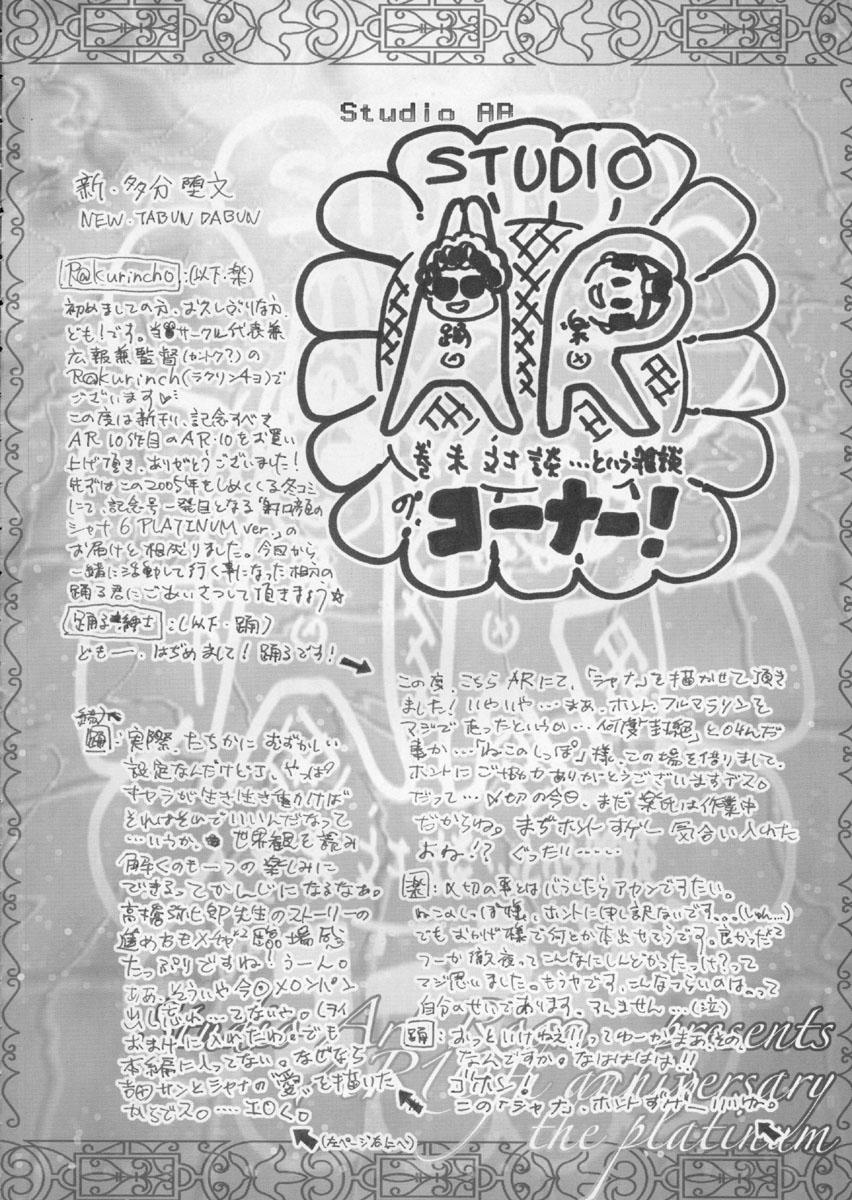 Studio AR
STUDIO
AR
踊
楽
巻末対談…という雑談
の、コーナー!
新・多分堕文
NEW・TABUN DABUN
R@kurincho:(以下・楽)
初めましての方、お久しぶりな方、
ども!です。当サークル代表兼
広報兼監督(カントク?)の
R@kurinch(ラクリンチョ)で
ございます♡
この度は新刊、記念すべき
AR 10作目のAR・10をお買い
上げ頂き、ありがとうございました!
先ずはこの2005年をしめくくる冬コミ
にて、記念号一発目となる「射口顔の
シャナ6 PLATINUM ver.」の
お届けと相成りました。今回から
一緒に活動して行く事になった相方の
踊る君にごあいさつして頂きましょう☆
踊る紳士:(以下・踊)
どもー、はぢめまして!踊るです!
この度、こちらARにて、「シャナ」を描かせて頂き
ました!いやいや…まあ、ホント、フルマラソンを
マジで走ったというか…何度「封絶」と叫んだ
事か…「ねこのしっぽ」様、この場を借りまして、
ホントにご協力ありがとうございますデス。
だって…〆切の今日、まだ楽氏は作業中
だからね。まぢホントすげー気合い入れた
よね!?ぐったり……
楽:〆切の事とはバラしたらアカンですたい。
ねこのしっぽ様、ホントに申し訳ないです。。。(しゅん…)
でもおかげ様で何とか本出せそうです。良かっただ
つーか徹夜ってこんなにしんどかったっけ?って
マジ思いました。もうヤです、こんなつらいのは。。って
自分のせいであります。すんません…(泣)
踊:おっといけねえ!!ってゆーか、まあ、その、
なんですか。なはははは!!
ゴホン!
この「シャナ」、ホントすげーいいよ〜。
踊:実際、たしかにむずかしい
設定なんだけどさ、やっぱ
キャラが生き生き動けば
それはそのでいいんだなって
…いうか、世界観を読み
解くのも一つの楽しみに
できるってかんじになるなぁ。
高橋弥七郎先生のストーリーの
進め方もメチャ²臨場感
たっぷりですね!うーん。
ああ、そういや今回メロンパン
出し忘れ…てないや。(ヲイ
おまけに入れたわ。でも
本編に入ってない。なぜなら
吉田サンとシャナの“愛”を描いた
からでス。…エロく。
(左ページ右上へ)
Studio AR presents
AR10th anniversary
the platinum